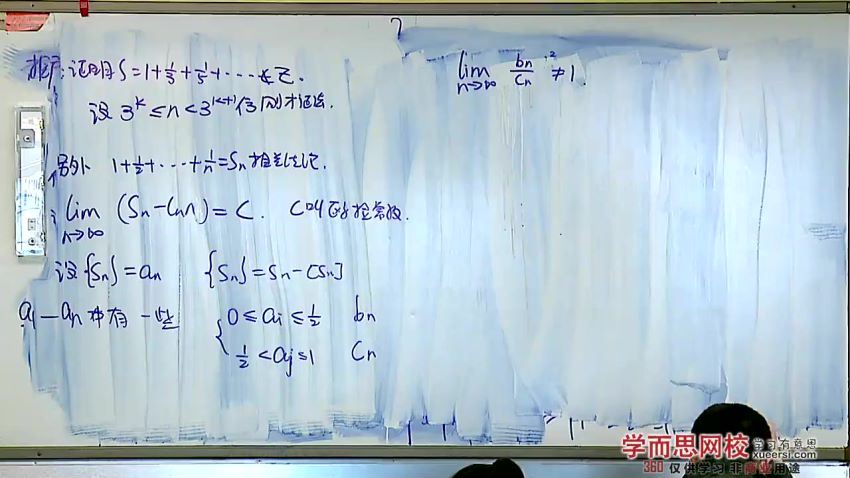 推广:证明S=1+1/3+1/5+⋯
设 3^k≤n<3^(k+1) 仿刚才证法.
另外 1+1/2+⋯+1/n=Sn 相关结论.
lim n→∞ (Sn-lnn)=C. C叫欧拉常数.
设{Sn}=an {Sn}=Sn-[Sn]
a1—an中有一些 0≤ai≤1/2 bn
1/2<aj≤1 Cn
lim n→∞ bn/Cn ≠1.
学而思网校 学习有意思
xuersi.com
360 仅供学习 非商业用途